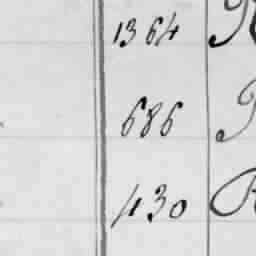 1364
686
430